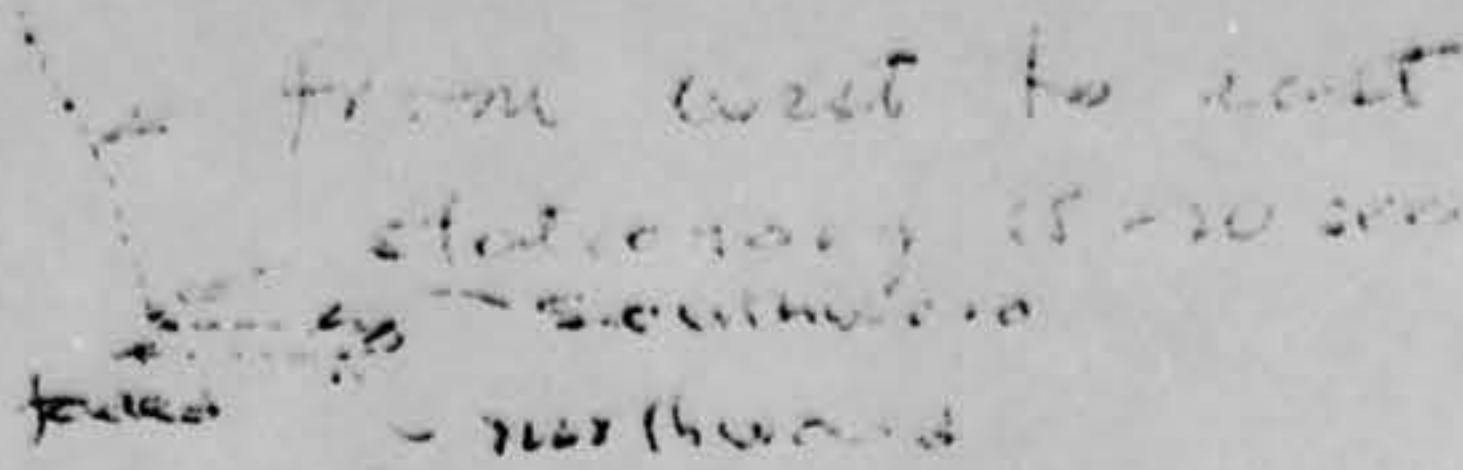 from west to east
stationary 15-20 sec
southward
- northward